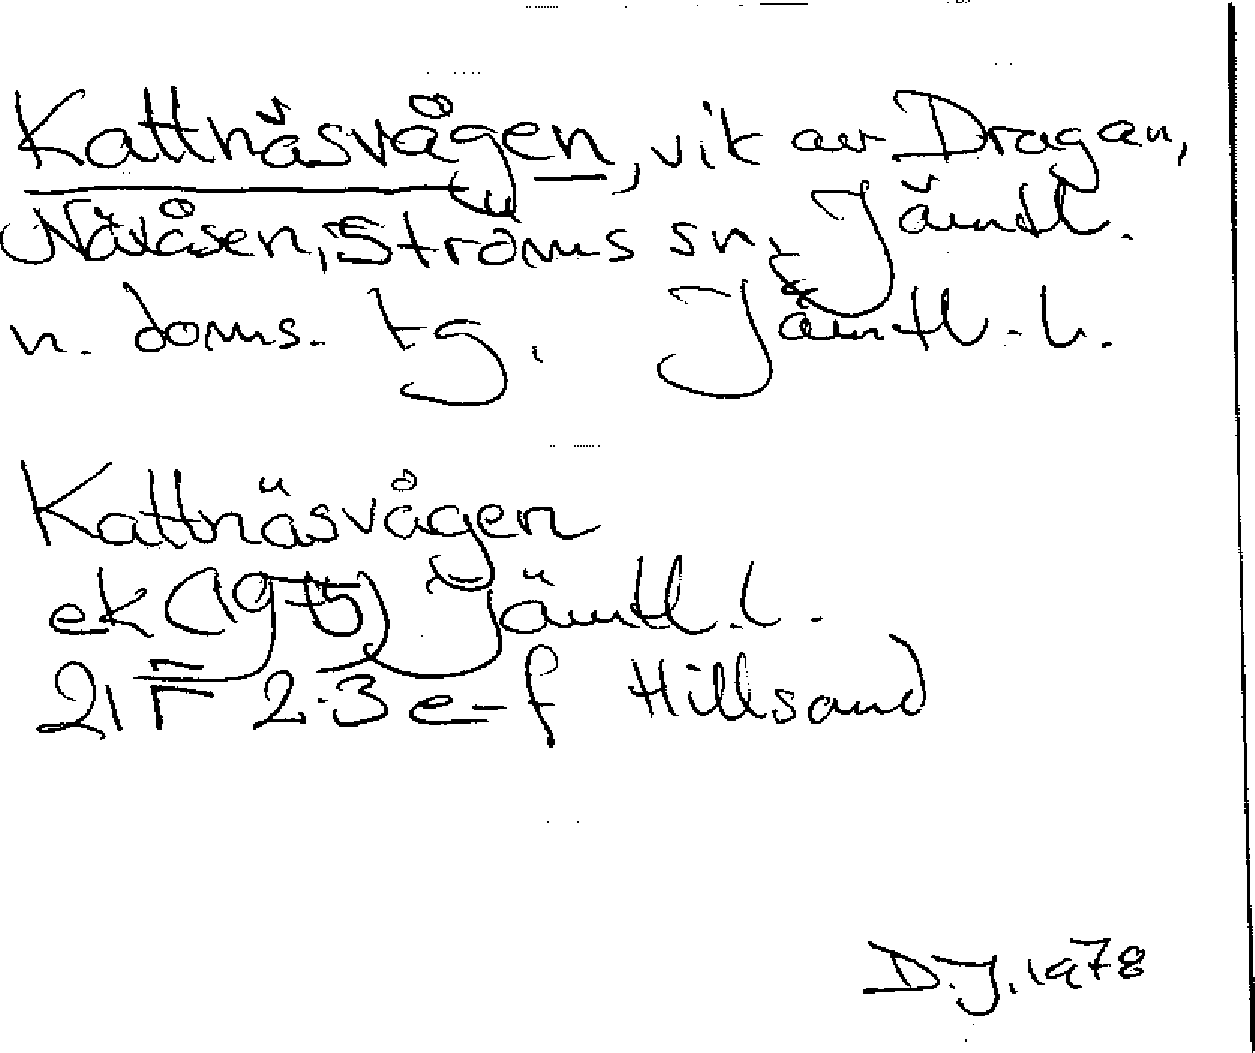 Kattnäsvågen, vik av Dragan,
Näsåsen, Ströms sn, Jämtl.
n. doms. tg. Jämtl. l.
Kattnäsvågen
ek (1975) Jämtl. l.
21 F 2-3 e-f Hillsand
D.J. 1978